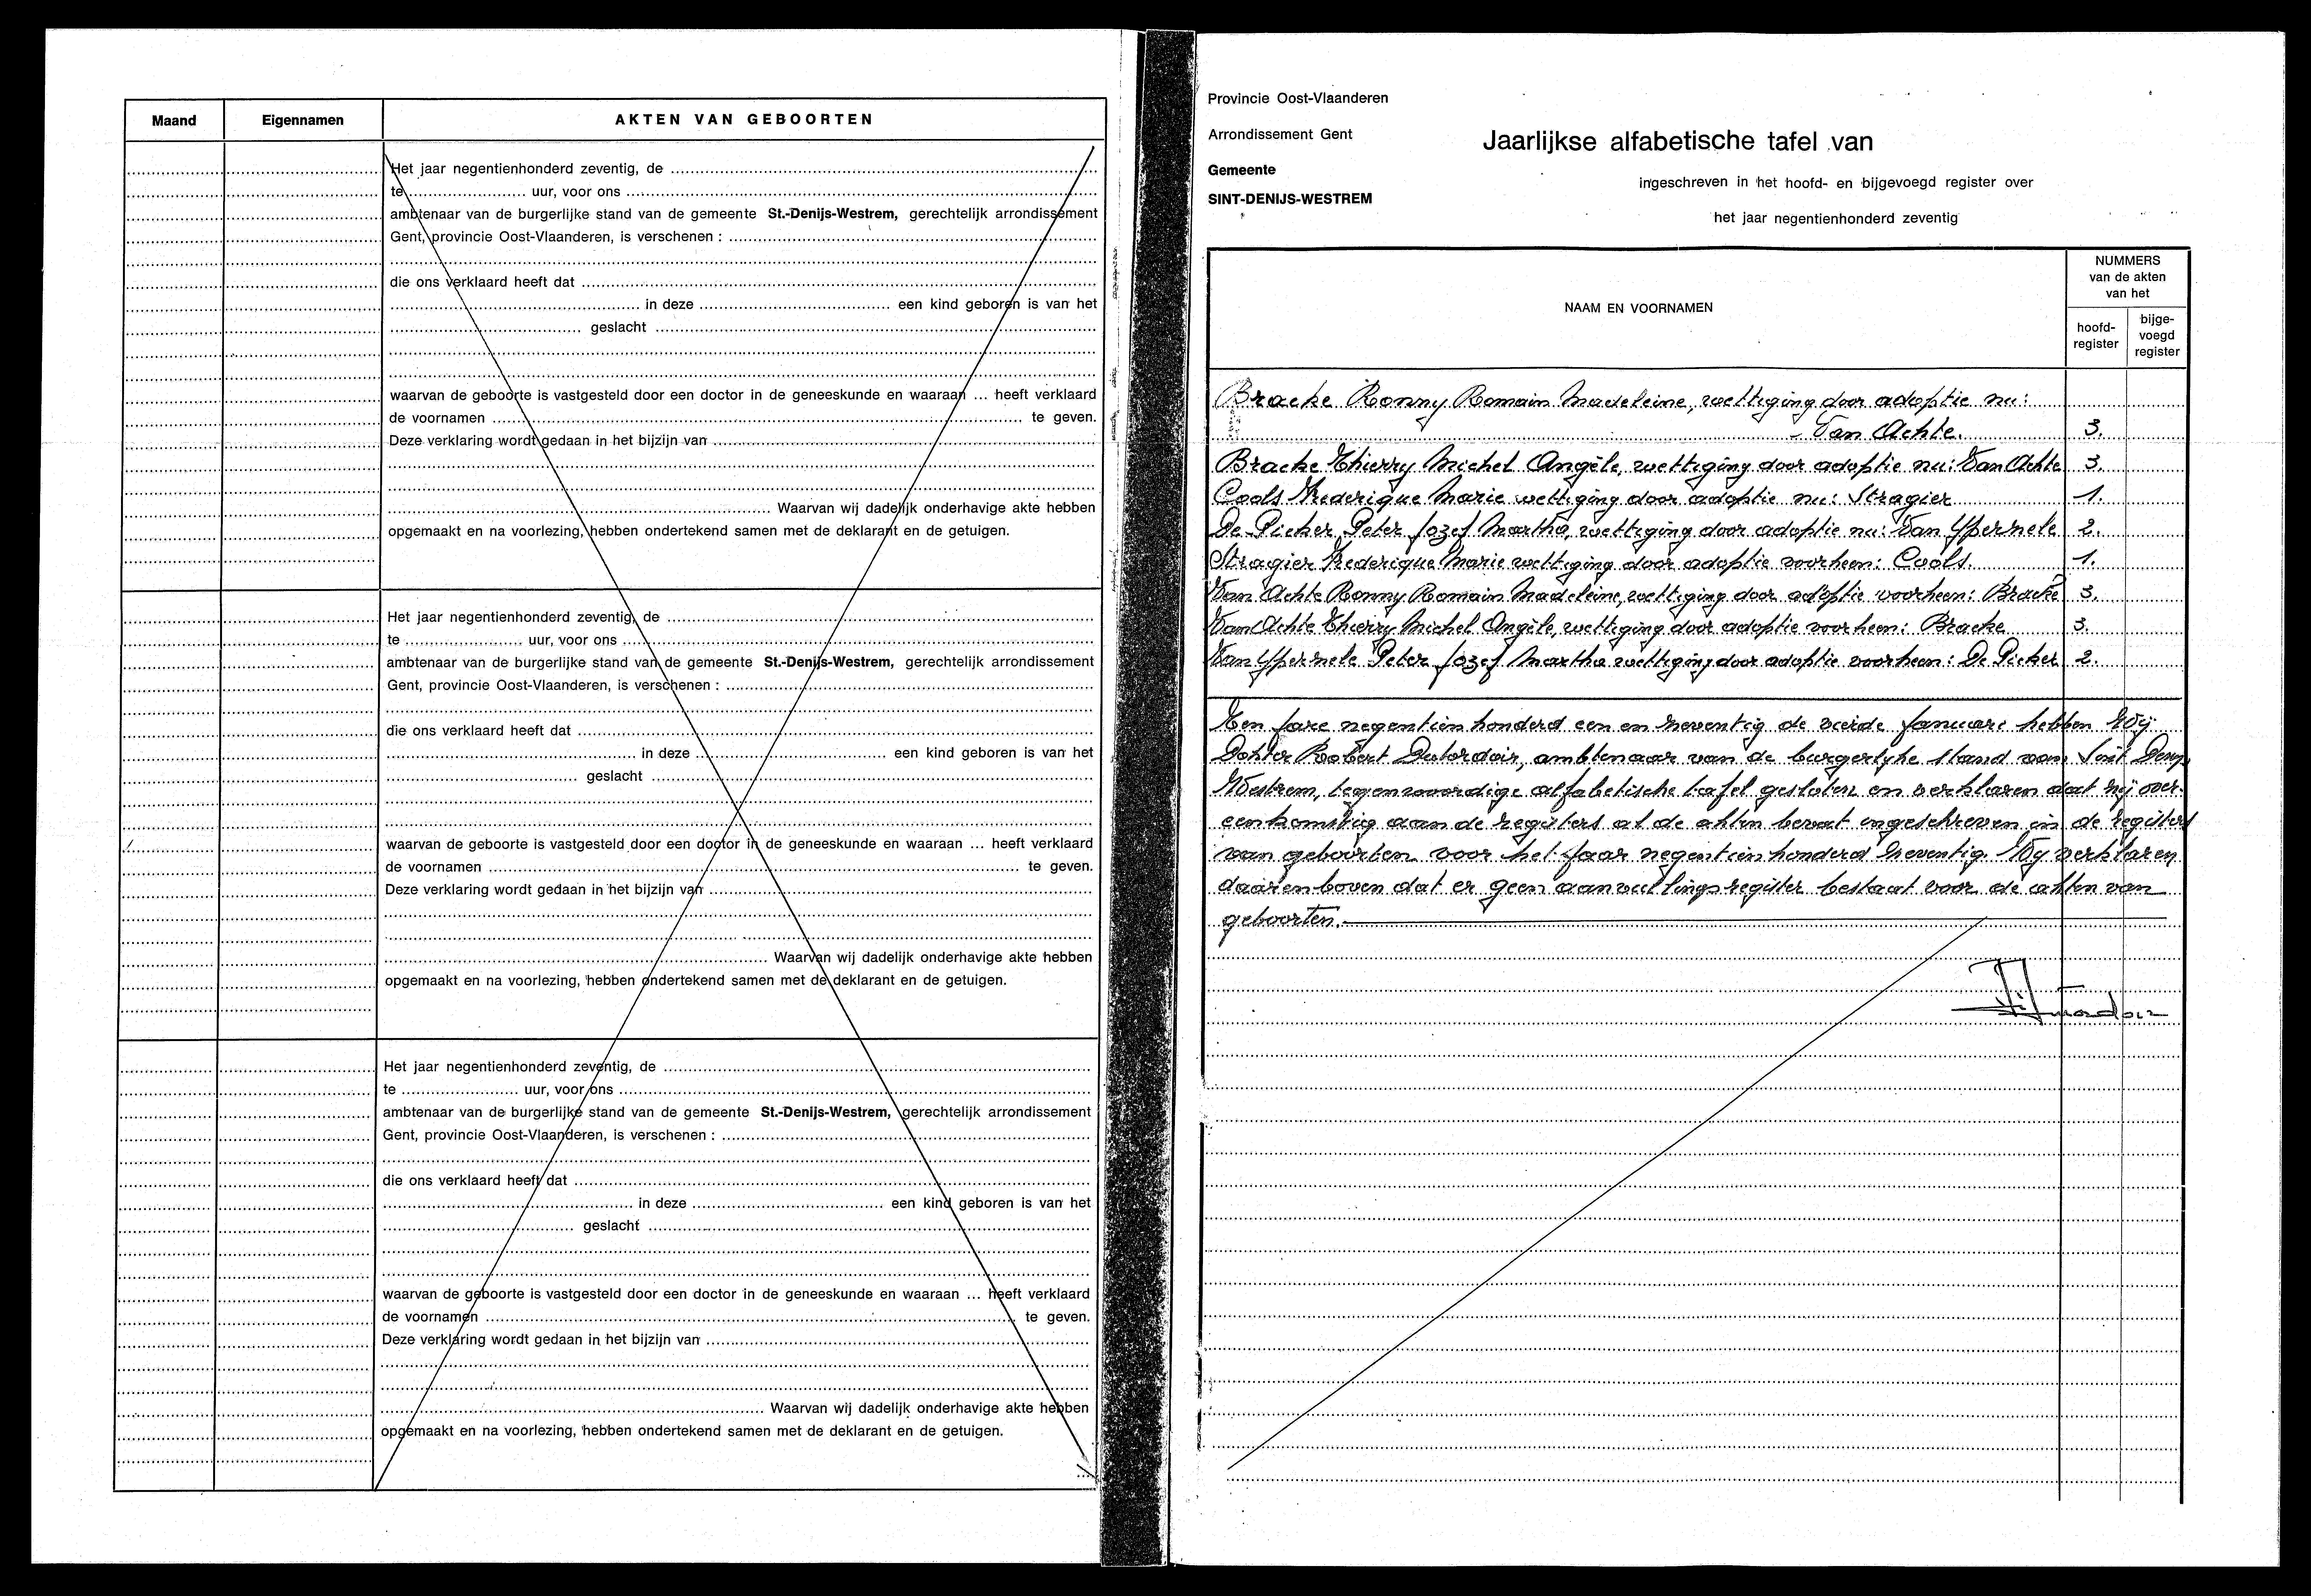 Maand Eigennamen AKTEN VAN GEBOORTEN
Het jaar negentienhonderd zeventig, de ........
te ........ uur, voor ons ........
ambtenaar van de burgerlijke stand van de gemeente St.-Denijs-Westrem, gerechtelijk arrondissement
Gent, provincie Oost-Vlaanderen, is verschenen : ........
die ons verklaard heeft dat ........
........ in deze ........ een kind geboren is van het
........ geslacht ........
waarvan de geboorte is vastgesteld door een doctor in de geneeskunde en waaraan ... heeft verklaard
de voornamen ........ te geven.
Deze verklaring wordt gedaan in het bijzijn van ........
........ Waarvan wij dadelijk onderhavige akte hebben
opgemaakt en na voorlezing, hebben ondertekend samen met de deklarant en de getuigen.
Het jaar negentienhonderd zeventig, de ........
te ........ uur, voor ons ........
ambtenaar van de burgerlijke stand van de gemeente St.-Denijs-Westrem, gerechtelijk arrondissement
Gent, provincie Oost-Vlaanderen, is verschenen : ........
die ons verklaard heeft dat ........
........ in deze ........ een kind geboren is van het
........ geslacht ........
waarvan de geboorte is vastgesteld door een doctor in de geneeskunde en waaraan ... heeft verklaard
de voornamen ........ te geven.
Deze verklaring wordt gedaan in het bijzijn van ........
........ Waarvan wij dadelijk onderhavige akte hebben
opgemaakt en na voorlezing, hebben ondertekend samen met de deklarant en de getuigen.
Het jaar negentienhonderd zeventig, de ........
te ........ uur, voor ons ........
ambtenaar van de burgerlijke stand van de gemeente St.-Denijs-Westrem, gerechtelijk arrondissement
Gent, provincie Oost-Vlaanderen, is verschenen : ........
die ons verklaard heeft dat ........
........ in deze ........ een kind geboren is van het
........ geslacht ........
waarvan de geboorte is vastgesteld door een doctor in de geneeskunde en waaraan ... heeft verklaard
de voornamen ........ te geven.
Deze verklaring wordt gedaan in het bijzijn van ........
........ Waarvan wij dadelijk onderhavige akte hebben
opgemaakt en na voorlezing, hebben ondertekend samen met de deklarant en de getuigen.
Provincie Oost-Vlaanderen
Arrondissement Gent
Gemeente
SINT-DENIJS-WESTREM
Jaarlijkse alfabetische tafel van
ingeschreven in het hoofd- en bijgevoegd register over
het jaar negentienhonderd zeventig
NAAM EN VOORNAMEN
NUMMERS
van de akten
van het
hoofd-
register
bijge-
voegd
register
Bracke Ronny Romain Madeleine, wettiging door adoptie nu:
- Van Achte. 3.
Bracke Thierry Michel Angèle, wettiging door adoptie nu: Van Achte 3.
Cools Frederique Marie wettiging door adoptie nu: Stragier 1.
De Picker Peter Jozef Martha, wettiging door adoptie nu: Van Ypernele 2.
Stragier Frederique Marie wettiging door adoptie voorheen: Cools. 1.
Van Achte Ronny Romain Madeleine, wettiging door adoptie voorheen: Bracke 3.
Van Achte Thierry Michel Angèle, wettiging door adoptie voorheen: Bracke 3.
Van Ypernele Peter Jozef Martha wettiging door adoptie voorheen: De Picker 2.
Ten jare negentienhonderd een en zeventig de vierde januari hebben Wij
Dokter Robert Dutordoir, ambtenaar van de burgerlyke stand van Sint Denys
Westrem, tegenwoordige alfabetische tafel gesloten en verklaren dat zij over-
eenkomstig aan de registers al de akten bevat ingeschreven in de registers
van geboorten voor het jaar negentienhonderd zeventig. Wy verklaren
daarenboven dat er geen aanvullingsregister bestaat voor de akten van
geboorten.